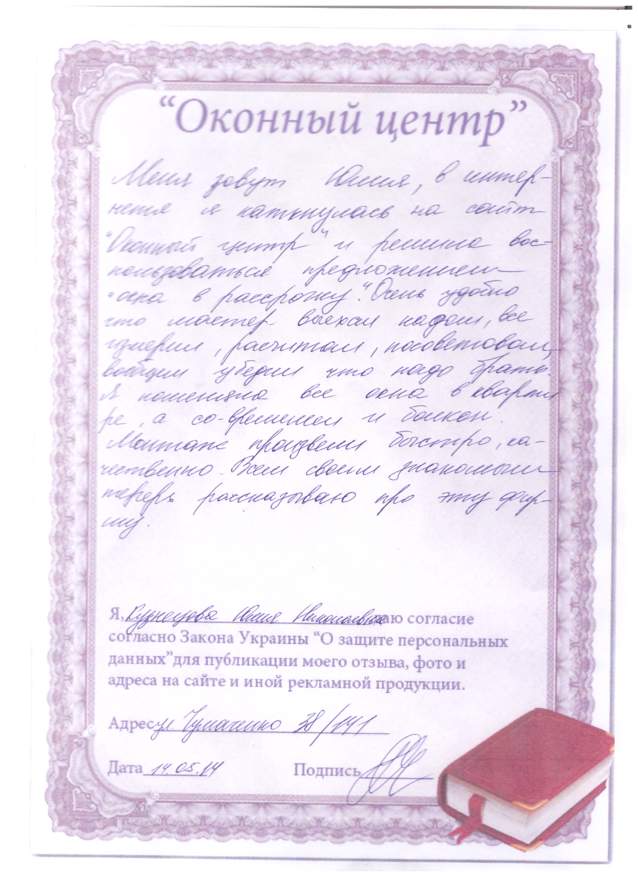 “Оконный центр”
Меня зовут Юлия, в интер-
нете я наткнулась на сайт
"Оконный центр" и решила вос-
пользоваться предложением
"окна в рассрочку". Очень удобно
что мастер выехал на дом, все
померил, расчитал, посоветовал,
вобщем убедил что надо брать.
Я поменяла все окна в кварти
ре, а со-временем и балкон.
Монтаж произвели быстро, ка-
чественно. Всем своим знакомым
теперь рассказываю про эту фир-
му.
Я, Кузнецова Юлия Николаевна даю согласие
согласно Закона Украины “О защите персональных
данных”для публикации моего отзыва, фото и
адреса на сайте и иной рекламной продукции.
Адрес ул Чумаченко 38/141
Дата 14.05.14 Подпись